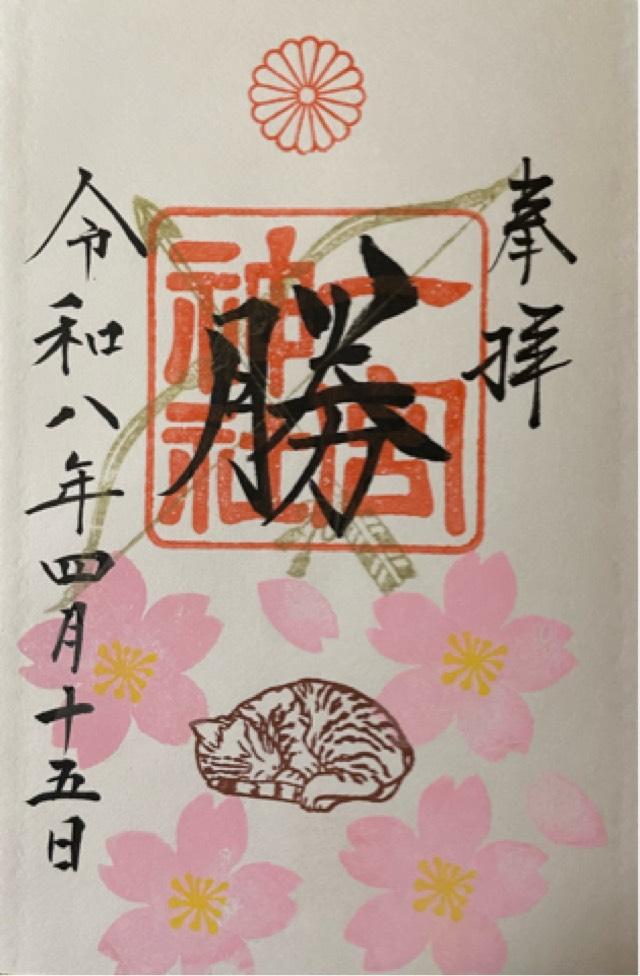 奉拝
一宮
神社
勝
令和八年四月十五日